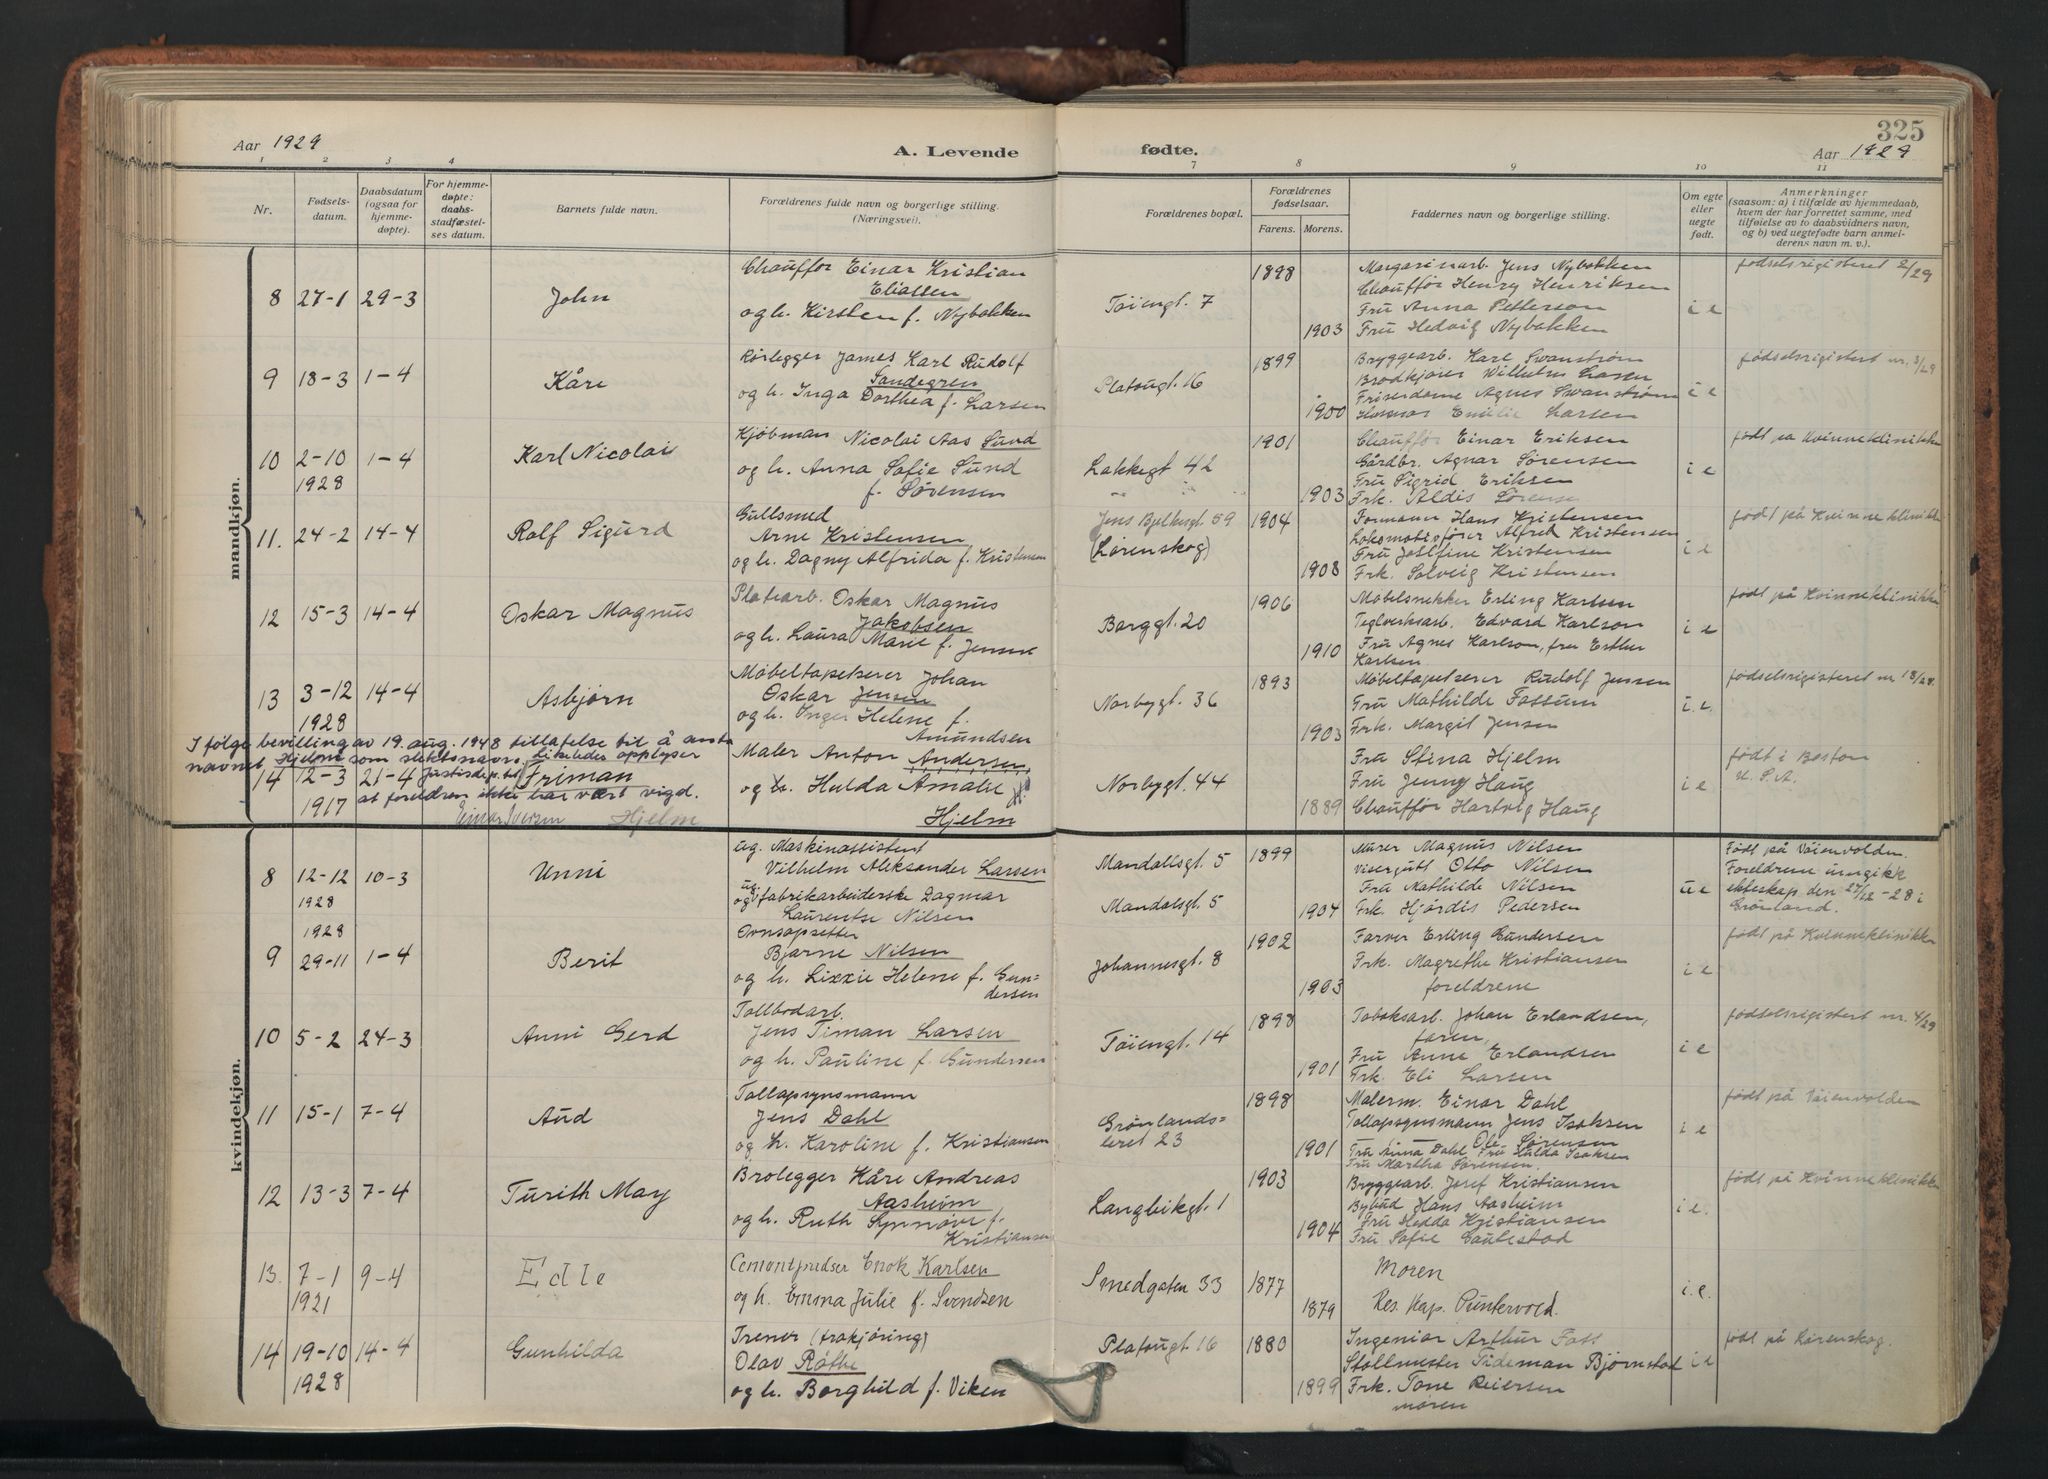 325
Aar 1929
A. Levende
fødte.
Aar 1929
1 2 3 4 7 8 9 10 11
Nr.
Fødsels-
datum.
Daabsdatum
(ogsaa for
hjemme-
døpte).
For hjemme-
døpte:
daabs-
stadfæstel-
ses datum.
Barnets fulde navn.
Forældrenes fulde navn og borgerlige stilling.
(Næringsvei).
Forældrenes bopæl.
Forældrenes
fødselsaar.
Farens. Morens.
Faddernes navn og borgerlige stilling.
Om egte
eller
uegte
født.
Anmerkninger
(saasom: a) i tilfælde av hjemmedaab,
hvem der har forrettet samme, med
tilføielse av to daabsvidners navn,
og b) ved uegtefødte barn anmel-
derens navn m. v.).
mandkjøn.
8 27-1 29-3 John
Chauffør Einar Kristian
Eliassen
og h. Kirsten f. Nybakken
Tøiengt. 7
1898
1903
Margarinarb. Jens Nybakken
Chauffør Henry Henriksen
Fru Anna Petterson
Fru Hedvig Nybakken
i e
fødselsrigisteret 2/29
9 18-3 1-4 Kåre
Rørlegger James Karl Rudolf
Sandegren
og h. Inga Dorthea f. Larsen
Platougt. 16
1899
1900
Bryggearb. Karl Swanstrøm
Brødkjører Wilhelm Larsen
Friserdame Agnes Swanstrøm
Emilie Larsen
i e
fødselsrigistert nr. 3/29
10 2-10 1-4 Karl Nicolai
1928
Kjøbman Nicolai Aas Sund
og h. Anna Sofie Sund
f. Sørensen
Lakkegt 42
1901
1903
Chauffør Einar Eriksen
Gårdbr. Agnar Sørensen
Fru Sigrid Eriksen
Frk. Aldis Sørensen
i e
født på Kvinneklinikken
11. 24-2 14-4 Rolf Sigurd
Gullsmed
Arne Kristensen
og h. Dagny Alfrida f. Kristensen
Jens Bjelkesgt. 59
(Lørenskog)
1904
1908
Formann Hans Kristensen
Lokomotivfører Alfred Kristensen
Fru Josefine Kristensen
Frk. Solveig Kristensen
i e
født på Kvinneklinikk
12 15-3 14-4 Oskar Magnus
Platearb. Oskar Magnus
Jakobsen
og h. Laura Marie f. Jensen
Borggt. 20
1906
1910
Møbelsnekker Erling Karlsen
Teglverksarb. Edvard Karlson
Fru Agnes Karlson, fru Esther
Karlsen
i e
født på Kvinneklinikk
13 3-12 14-4 Asbjørn
1928
Møbeltapetserer Johan
Oskar Jensen
og h. Inger Helene f.
Amundsen
Norbygt. 36
1893
1903
Møbeltapetserer Rudolf Jensen
Fru Mathilde Fossum
Frk. Margit Jensen
i. e.
fødselsrigisteret nr 18/28.
I følge bevilling av 19. aug. 1948 tillatelse til å anta
navnet Hjelm som slektsnavn. Likeledes opplyser
14 12-3 21-4 Justisdep. at Friman
1917 at foreldren ikke har vært vigd.
Einar Iversen Hjelm
Maler Anton Andersen,
og h. Hulda Amalie
Hjelm
Norbygt. 44
1889
Fru Stina Hjelm
Fru Jenny Haug
Chauffør Hartvig Haug
i e
født i Boston
U. S. A.
kvindekjøn.
8 12-12 10-3 Unni
1928
ug. Maskinassistent
Vilhelm Aleksander Larsen
og ug. fabrikarbeiderske Dagmar
Laurentse Nilsen
Mandalsgt. 5
Mandalsgt. 5
1899
1904
Murer Magnus Nilsen
Visergutt Otto Nilsen
Fru Mathilde Nilsen
Frk. Hjørdis Pedersen
u e
Født på Vøienvolden.
Foreldrene inngikk
ekteskap den 27/12-28 i
Grønland.
1928
9 29-11 1-4 Berit
Ovnsopsetter
Bjarne Nilsen
og h. Lizzie Helene f. Gun-
dersen
Johannesgt. 8
1902
1903
Farver Erling Gundersen
Frk. Magrethe Kristiansen
foreldrene
i e
født på Kvinneklinikk
10 5-2 24-3 Anni Gerd
Tollbodarb.
Jens Timan Larsen
og h. Pauline f. Gundersen
Tøiengt. 14
1898
1901
Tobaksarb. Johan Erlandsen,
faren,
Fru Anne Erlandsen
Frk. Eli Larsen
i e
fødselsrigistert nr. 4/29
11 15-1 7-4 Aud
Tollopsynsmann
Jens Dahl
og h. Karoline f. Kristiansen
Grønlands-
leret 23
1898
1901
Malerm. Einar Dahl
Tollopsynsmann Jens Isaksen
Ole Sørensen
Fru Anna Dahl Fru Hulda Isaksen
Fru Martha Sørensen.
i e
født på Vøienvolden
12 13-3 7-4 Turith May
Brolegger Kåre Andreas
Aasheim
og h. Ruth Synnøve f.
Kristiansen
Langleikgt. 1
1903
1904
Bryggearb. Josef Kristiansen
Bybud Hans Aasheim
Fru Hedda Kristiansen
Fru Sofie Gaulestad
i e.
født på Kvinneklinikk
13. 7-1 9-4 Edle
1921
Cementpudser Enok Karlsen
og h. Emma Julie f. Svendsen
Smedgaten 33
1877
1879
Moren
Res. Kap. Puntervold.
i. e.
14 19-10 14-4 Gunhilda
1928
Trener (travkjøring)
Olav Røthe
og h. Borghild f. Viken
Platougt 16
1880
1899
Ingeniør Arthur Foss
Stallmester Tideman Bjørnstad
Frk. Tone Reiersen
moren
i e
født på Lørenskog.